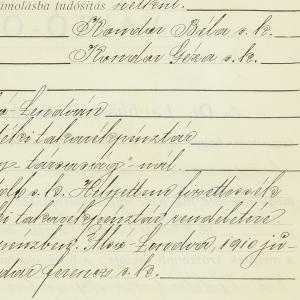 ámolásba tudósítás nélkül.
Kondor Béla s.k.
Kondor Géza s.k.
ó Lendván
déki takarékpénztár
társaság"-nál.
s.k. Helyettem fizettessék
ki takarékpénztár rendeletére
pénzben. Alsó-Lendva, 1910 jú-
dor Ferencz s.k.